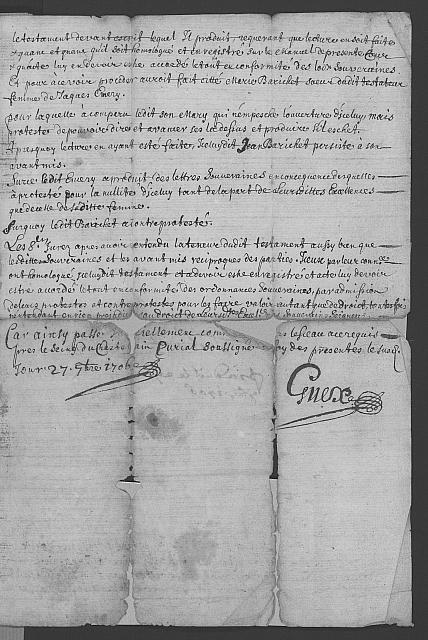 le testament devant escrit lequel Il produit, requerant que lecture en soit faite
et quand et quand qu'il soit homologué et enregistré sur le Manual de presente Cour
et qu'acte luy en devoir estre accordé le tout en conformité des loix Souveraines
Et pour a ce voir proceder auroit fait citté Marie Barichet soeur dudit testateur
femme de Jaques Emery.
pour laquelle a comparu ledit son Mary qui n'empesche l'ouverture d'iceluy, mais
proteste de pouvoir dire et avancer ses la dessus et produire s'il eschet.
Apres quoy lecture en ayant esté faite, Iceluy dit Jean Barichet persiste a son
avant mis.
Surce ledit Emery a produit des lettres Souveraines en consequence desquelles
a protesté pour la nullité d'iceluy tant de la part de Leursdittes Excellences
que de celle de saditte femme.
Surquoy ledit Barichet a contreprotesté.
Les Srs Jurez apres avoir entendu la teneur dudit testament aussy bien que
lesdittes Souveraines et les avant mis reciproques des parties. Iceux par leur connce
ont homologué jceluy dit testament et a devoir estre enregistré et acte luy devoir
estre accordé le tout en conformité des ordonnances Souveraines, par admission
de leurs protestes et contreprotestes pour les faire valoir autant que de droit, toutesfois
n'entendant en rien prejudicier au droit de Leurs dittes Excell
Car ainsy passé
pres le Seing du Curial soussigné des presentes le susdit
Jour 27e 9bre 1706
Guex